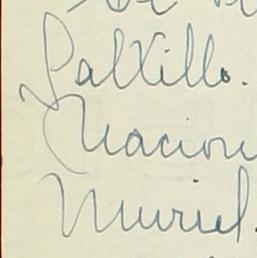 Saltillo.
Nacion
Muriel.